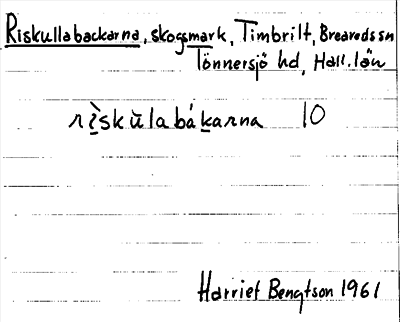 Riskullabackarna, skogsmark, Timbrilt, Breareds sn
Tönnersjö hd, Hall. län
rìskùlabákarna 10
Harriet Bengtson 1961